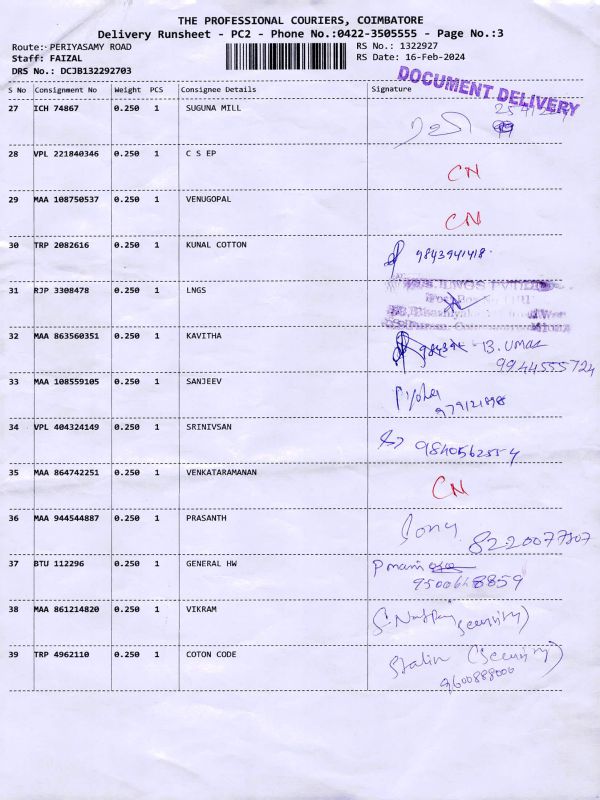 THE PROFESSIONAL COURIERS, COIMBATORE
Delivery Runsheet - PC2 - Phone No.:0422-3505555 - Page No.:3
Route: PERIYASAMY ROAD RS No.: 1322927
Staff: FAIZAL RS Date: 16-Feb-2024
DRS No.: DCJB132292703
DOCUMENT DELIVERY
S No Consignment No Weight PCS Consignee Details Signature
27 ICH 74867 0.250 1 SUGUNA MILL
28 VPL 221840346 0.250 1 C S EP CN
29 MAA 108750537 0.250 1 VENUGOPAL CN
30 TRP 2082616 0.250 1 KUNAL COTTON 9843941418
31 RJP 3308478 0.250 1 LNGS
32 MAA 863560351 0.250 1 KAVITHA B. UMA
9944555724
33 MAA 108559105 0.250 1 SANJEEV
34 VPL 404324149 0.250 1 SRINIVSAN
35 MAA 864742251 0.250 1 VENKATARAMANAN CN
36 MAA 944544887 0.250 1 PRASANTH Sony
37 BTU 112296 0.250 1 GENERAL HW P mani
38 MAA 861214820 0.250 1 VIKRAM security)
39 TRP 4962110 0.250 1 COTON CODE Stalin (Security)
9600888006